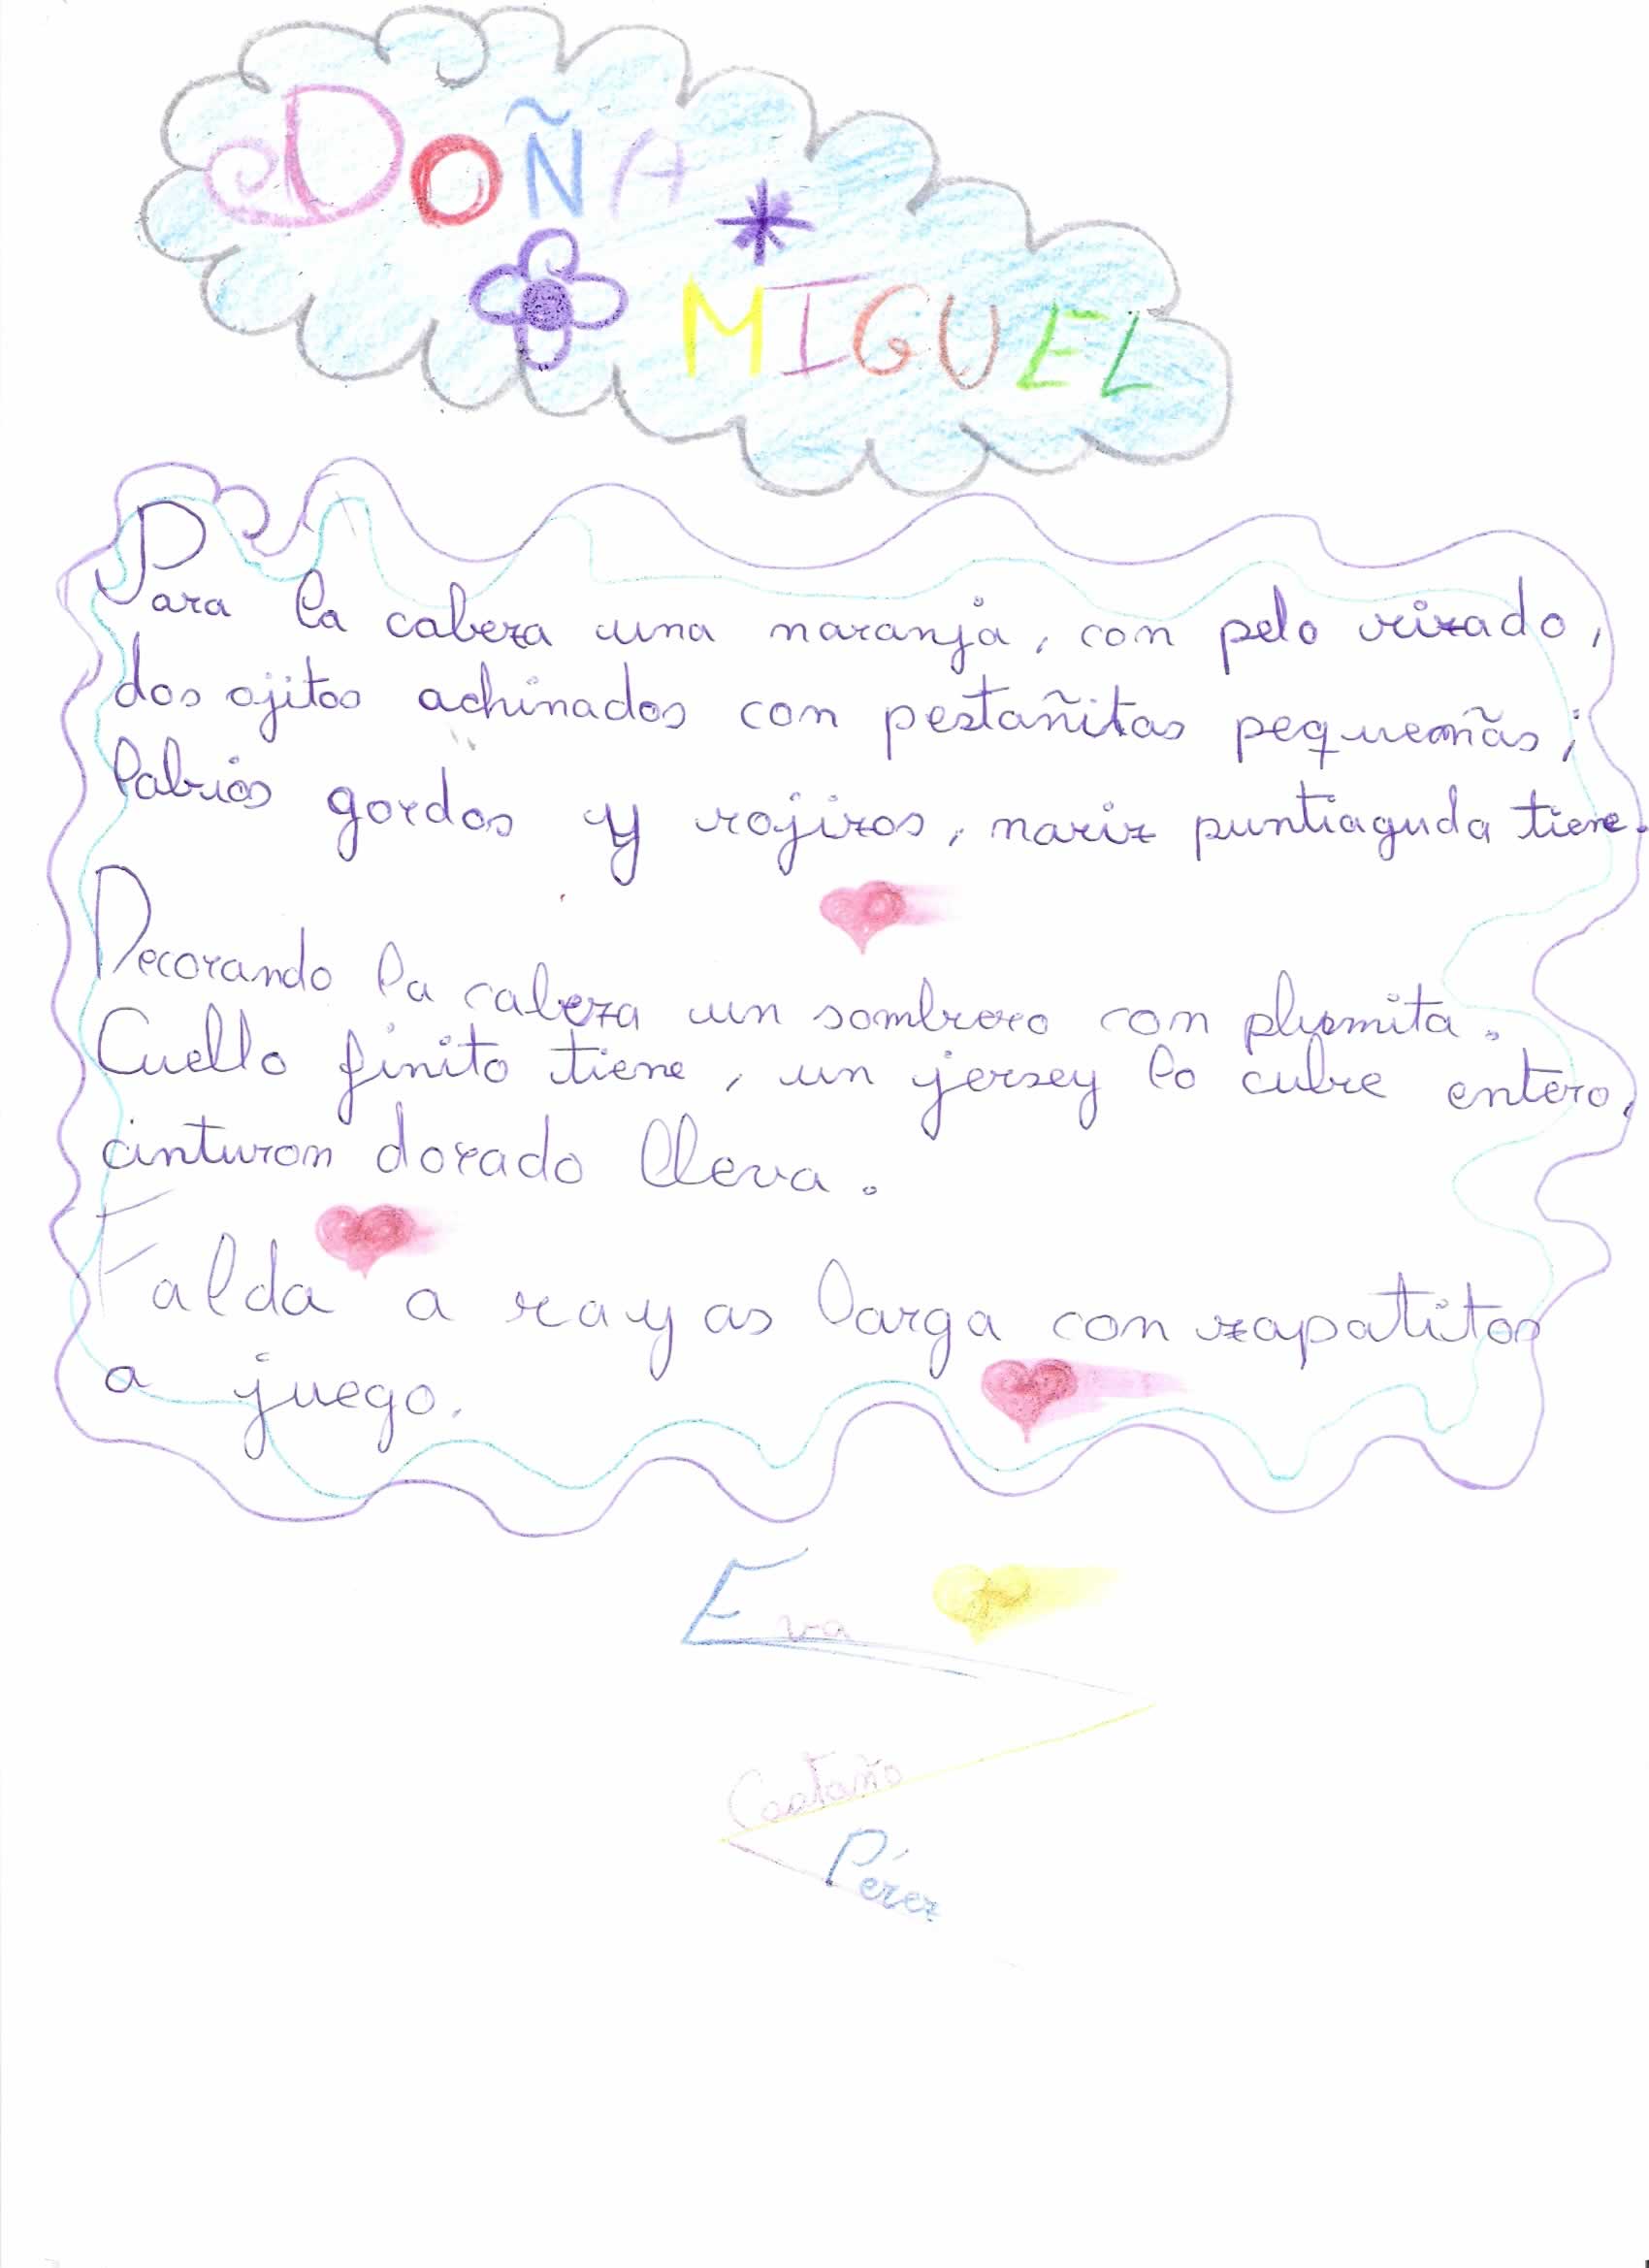 DOÑA
MIGUEL
Para la cabeza una naranja, con pelo rizado,
dos ojitos achinados con pestañitas pequeñas,
labios gordos y rojizos, nariz puntiaguda tiene.
Decorando la cabeza un sombrero con plumita.
Cuello finito tiene, un jersey lo cubre entero,
cinturon dorado lleva.
Falda a rayas larga con zapatitos
a juego.
Eva
Castaño
Pérez